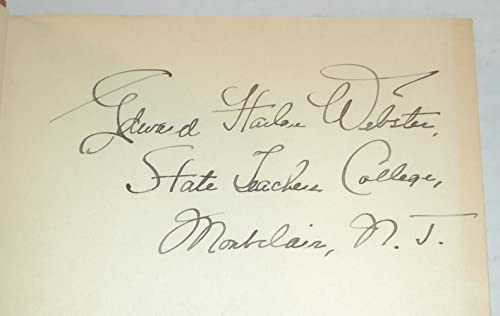 Edward Harlan Webster,
State Teachers College,
Montclair, N. J.